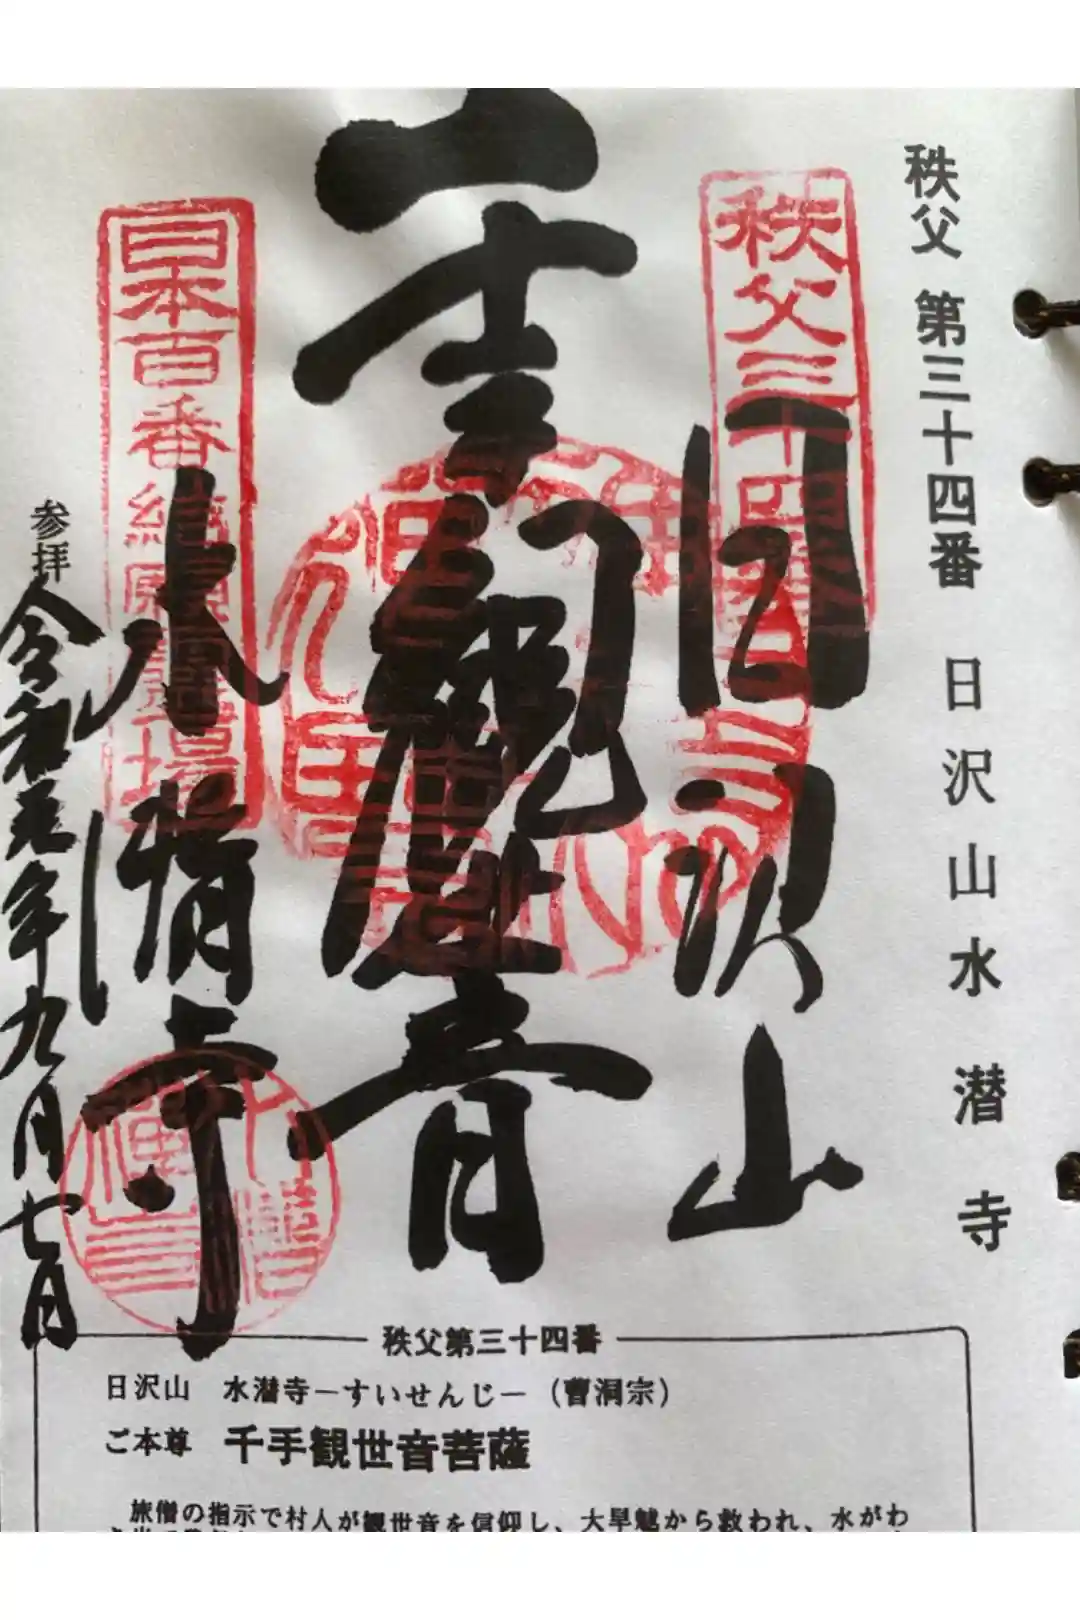 秩父 第三十四番 日沢山水潜寺
秩父三十四番
日沢山
千手観世音
日本百番結願
水潜寺
参拝
令和元年九月七日
秩父第三十四番
日沢山 水潜寺－すいせんじ－（曹洞宗）
ご本尊 千手観世音菩薩
旅僧の指示で村人が観世音を信仰し、大旱魃から救われ、水がわ